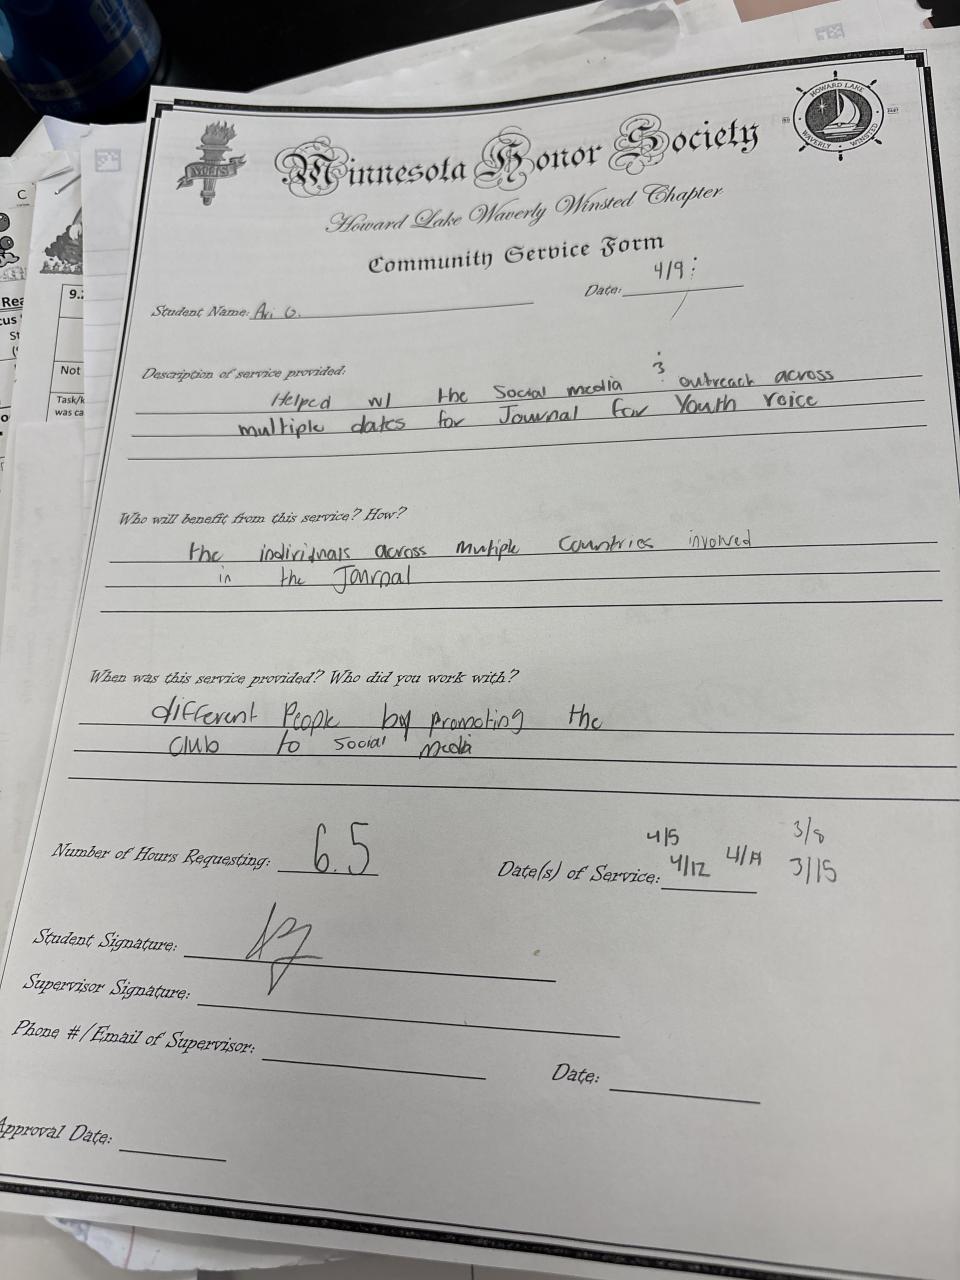 HOWARD LAKE
WAVERLY • WINSTED
Minnesota Honor Society
Howard Lake Waverly Winsted Chapter
Community Service Form
Student Name: Ari G.
Date: 4/9
Description of service provided:
Helped w/ the Social media & outreach across
multiple dates for Journal for Youth Voice
Who will benefit from this service? How?
the individuals across multiple countries involved
in the Journal
When was this service provided? Who did you work with?
different People by promoting the
club to social media
Number of Hours Requesting: 6.5
Date(s) of Service: 4/5 4/12 3/8 3/15
Student Signature:
Supervisor Signature:
Phone #/Email of Supervisor:
Date:
Approval Date:
C
Rea
cus
St
9.2
Not
Task/k
was ca